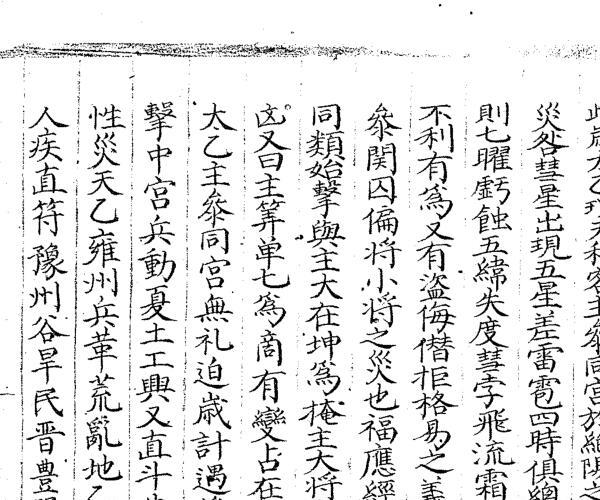 此歲太乙理天和客主参同宮於絶陽之
災咎彗星出現五星差雷雹四時俱
則七曜虧蝕五緯失度彗孛飛流霜
不利有為又有盜侮僣拒格易之義
叅関囚偏将小将之災也福應經
同類始擊與主大在坤為掩主大将
凶又曰主筭单七為啇有變占在
太乙主叅同宮無礼迫歲計遇
擊中宮兵動夏土工興又直斗
性災天乙雍州兵革荒亂地乙
人疾直符豫州谷旱民晋豊